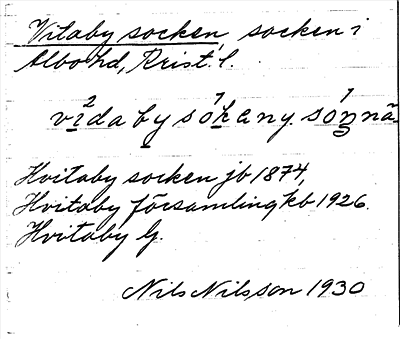 Vitaby socken, socken i
Albo hd, Krist. l.
vi²da by sǫ́kɛny. sǫ́n̥nä
Hvitaby socken jb 1874,
Hvitaby församling kb 1926.
Hvitaby G.
Nils Nilsson 1930